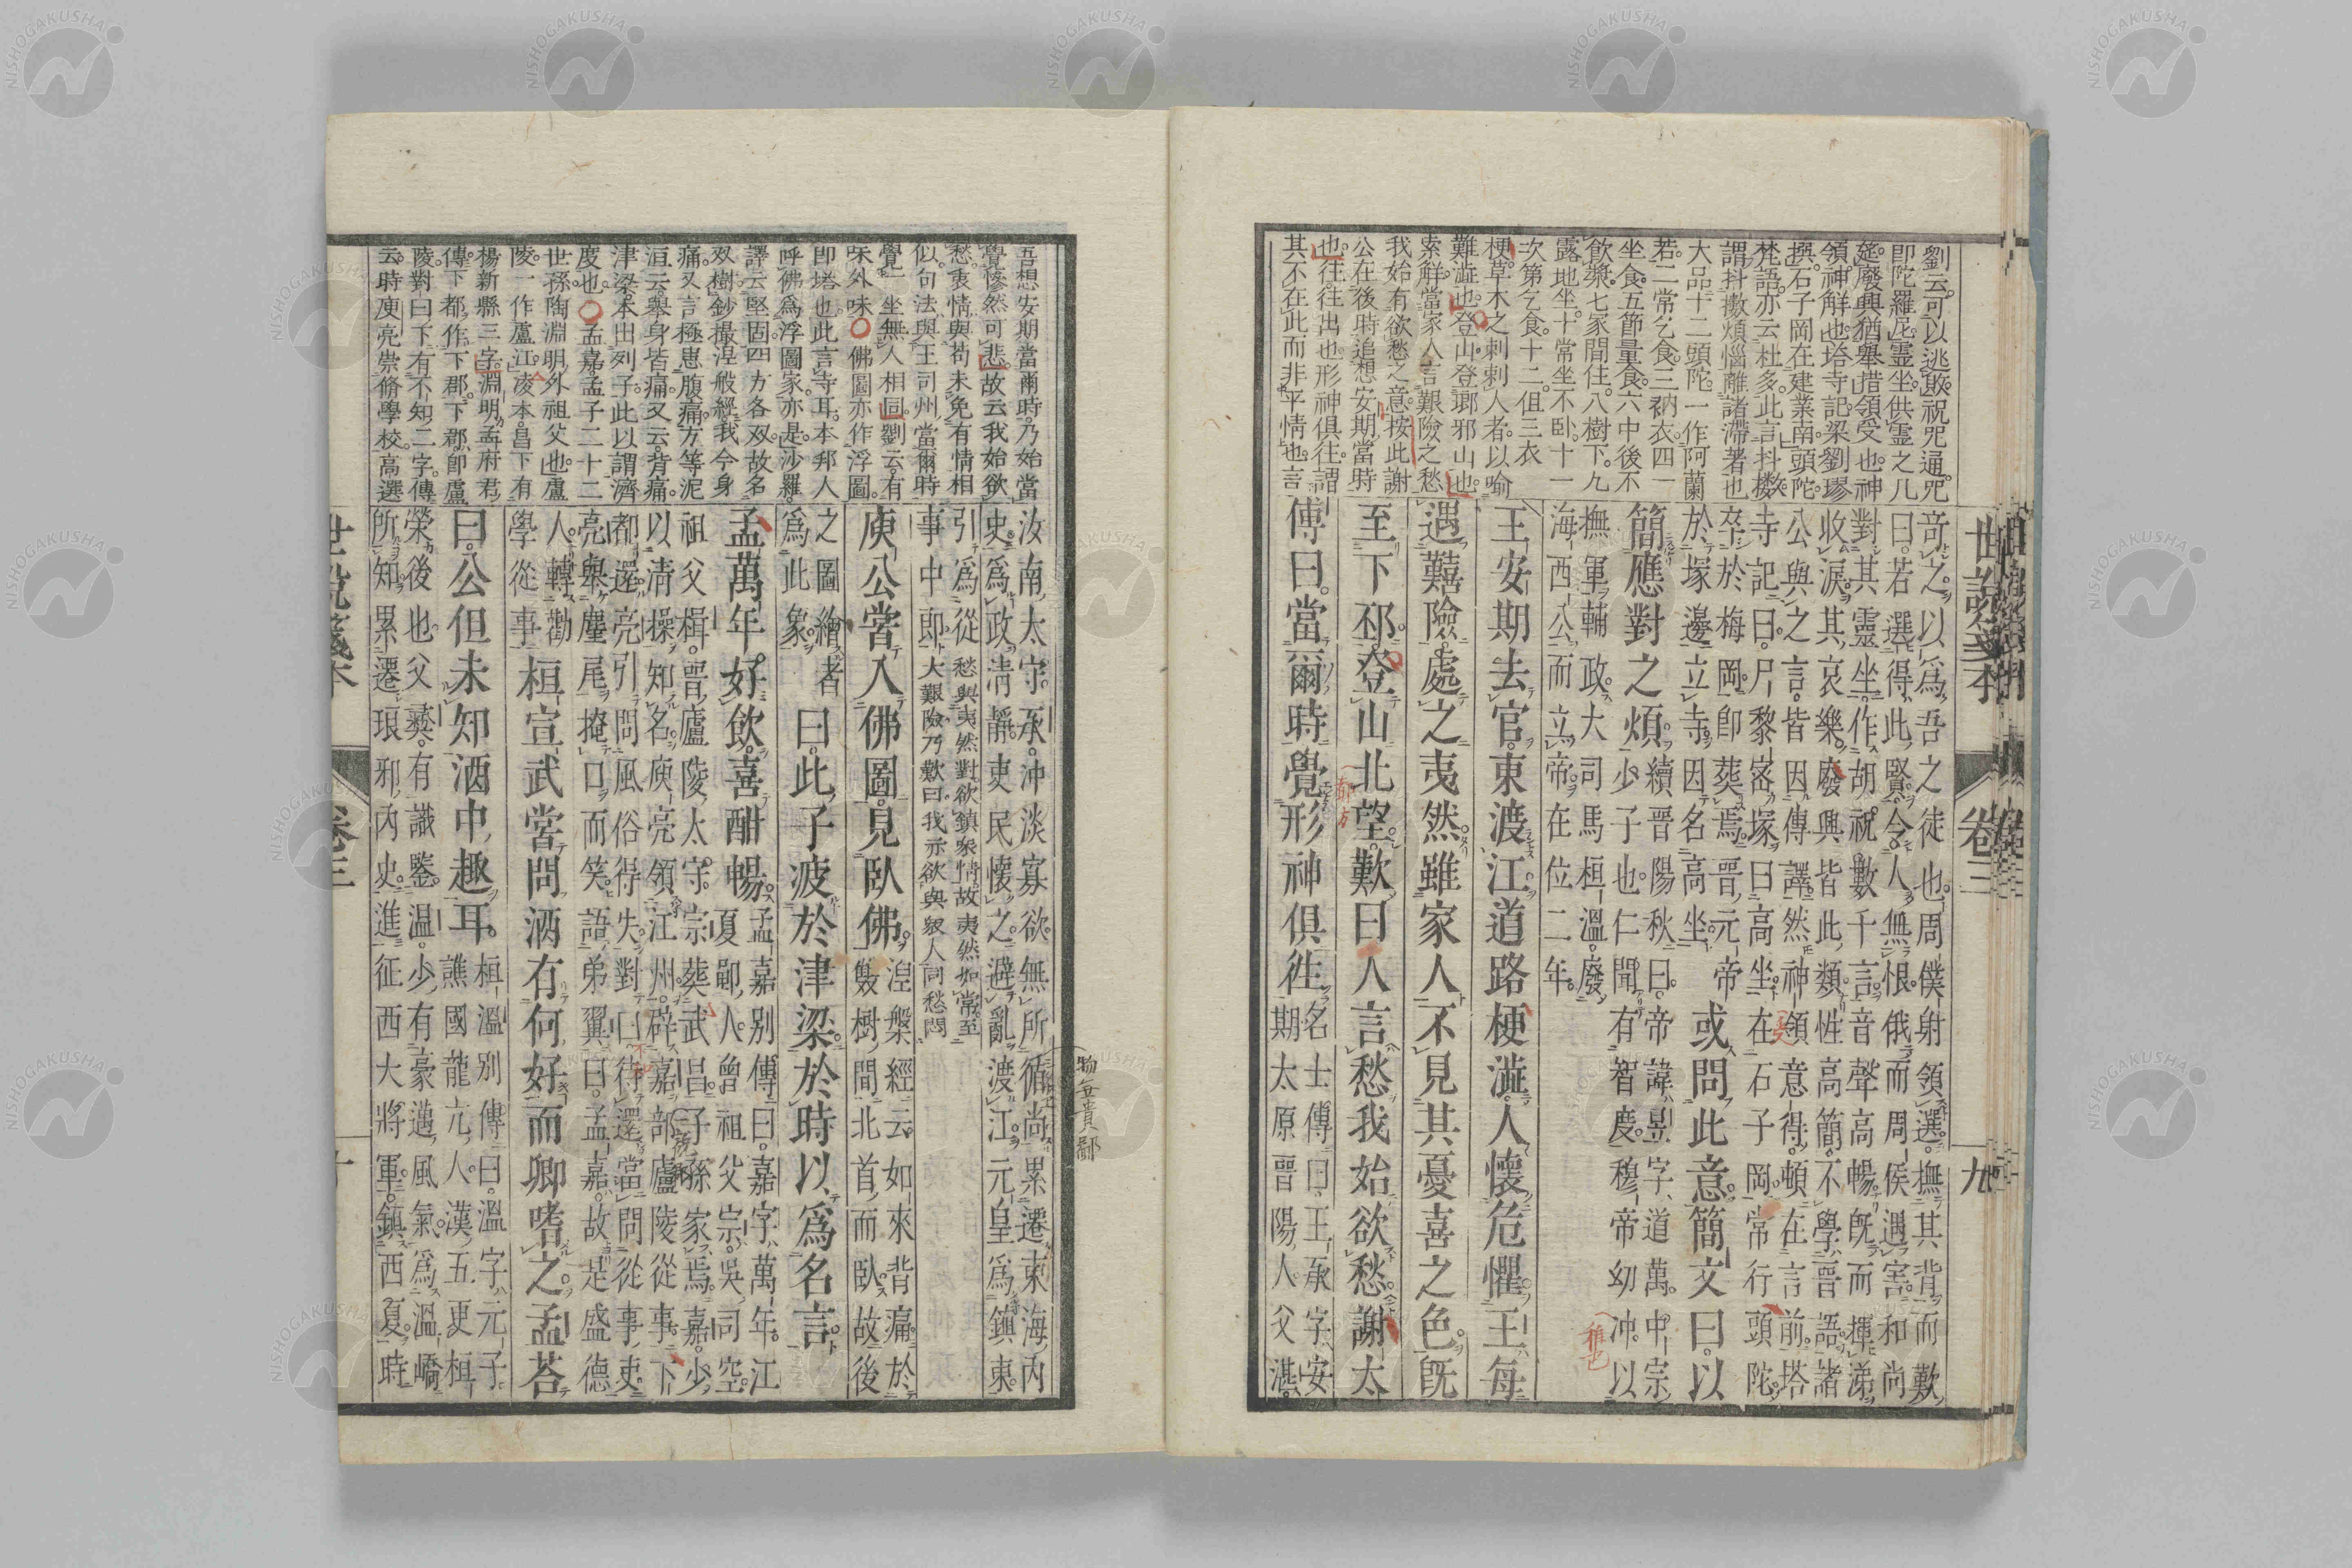 劉云可以逃敢祝咒通咒
即陀羅尼靈坐供靈之几
筵廢興猶舉措領受也神
領神解也塔寺記梁劉璆
撰石子岡在建業南頭陀
梵語亦云杜多此言抖擻
謂抖擻煩惱離諸滯著也
大品十二頭陀一作阿蘭
若二常乞食三衲衣四一
坐食五節量食六中後不
飲漿七冢間住八樹下九
露地坐十常坐不卧十一
次第乞食十二但三衣
梗草木之刺刺人者以喻
難澁也登山登瑯邪山也
索解當家人言艱險之愁
我始有欲愁之意按此謝
公在後時追想安期當時
也往往出也形神俱往謂
其不在此而非平情也言
奇之以爲吾之徒也周僕射領選撫其背而歎
曰若選得此賢令人無恨俄而周侯遇害和尚
對其靈坐作胡祝數千言音聲高暢旣而揮涕
收淚其哀樂廢興皆此類性高簡不學晉語諸
公與之言皆因傳譯然神領意得頓在言前塔
寺記曰尸黎密冢曰高坐在石子岡常行頭陀
卒於梅岡卽葬焉晉元帝
於塚邊立寺因名高坐
或問此意簡文曰以
簡應對之煩
續晉陽秋曰帝諱昱字道萬中宗
少子也仁聞有智度穆帝幼冲以
撫軍輔政大司馬桓溫廢
海西公而立帝在位二年
王安期去官東渡江道路梗澁人懷危懼王每
遇艱險處之夷然雖家人不見其憂喜之色旣
至下邳登山北望歎曰人言愁我始欲愁謝太
傅曰當爾時覺形神俱往
名士傳曰王承字安
期太原晉陽人父湛
世說箋本
卷三
九
吾想安期當爾時乃始當
覺慘然可悲故云我始欲
愁夷情與苟未免有情相
似句法與王司州當爾時
覺一坐無人相同劉云有
味外味○佛圖亦作浮圖
卽塔也此言寺耳本邦人
呼佛爲浮圖家亦是沙羅
譯云堅固四方各双故名
双樹鈔撮涅般經我今身
痛又言極患腹痛方等泥
洹云舉身皆痛又云背痛
津梁本出列子此以謂濟
度也○孟嘉孟子二十二
世孫陶淵明外祖父也廬
陵一作廬江凌本昌下有
楊新縣三字淵明孟府君
傳下都作下郡下郡卽廬
陵對曰下有不知二字傳
云時庾亮崇脩學校高選
汝南太守承冲淡寡欲無所循尚累遷東海內
史爲政淸靜吏民懷之避亂渡江元皇爲鎭東
引爲從
事中郞
愁與夷然對欲鎭衆情故夷然如常至
大艱險乃歎曰我亦欲與衆人同愁悶
物每貴鄙
庾公嘗入佛圖見臥佛
涅槃經云如來背痛於
雙樹間北首而臥故後
之圖繪者
爲此象
曰此子疲於津梁於時以爲名言
孟萬年好飲喜酣暢
孟嘉別傳曰嘉字萬年江
夏鄳人曾祖父宗吳司空
祖父楫晉廬陵太守宗葬武昌子孫家焉嘉少
以淸操知名庾亮領江州辟嘉部廬陵從事下
都還亮引問風俗得失對曰待還當問從事吏
亮舉麈尾掩口而笑語弟翼曰孟嘉故是盛德
人轉勸
學從事
桓宣武嘗問酒有何好而卿嗜之孟荅
曰公但未知酒中趣耳
桓溫別傳曰溫字元子
譙國龍亢人漢五更桓
榮後也父彝有識鑒溫少有豪邁風氣爲溫嶠
所知累遷琅邪內史進征西大將軍鎭西夏時
世說箋本
卷三
十